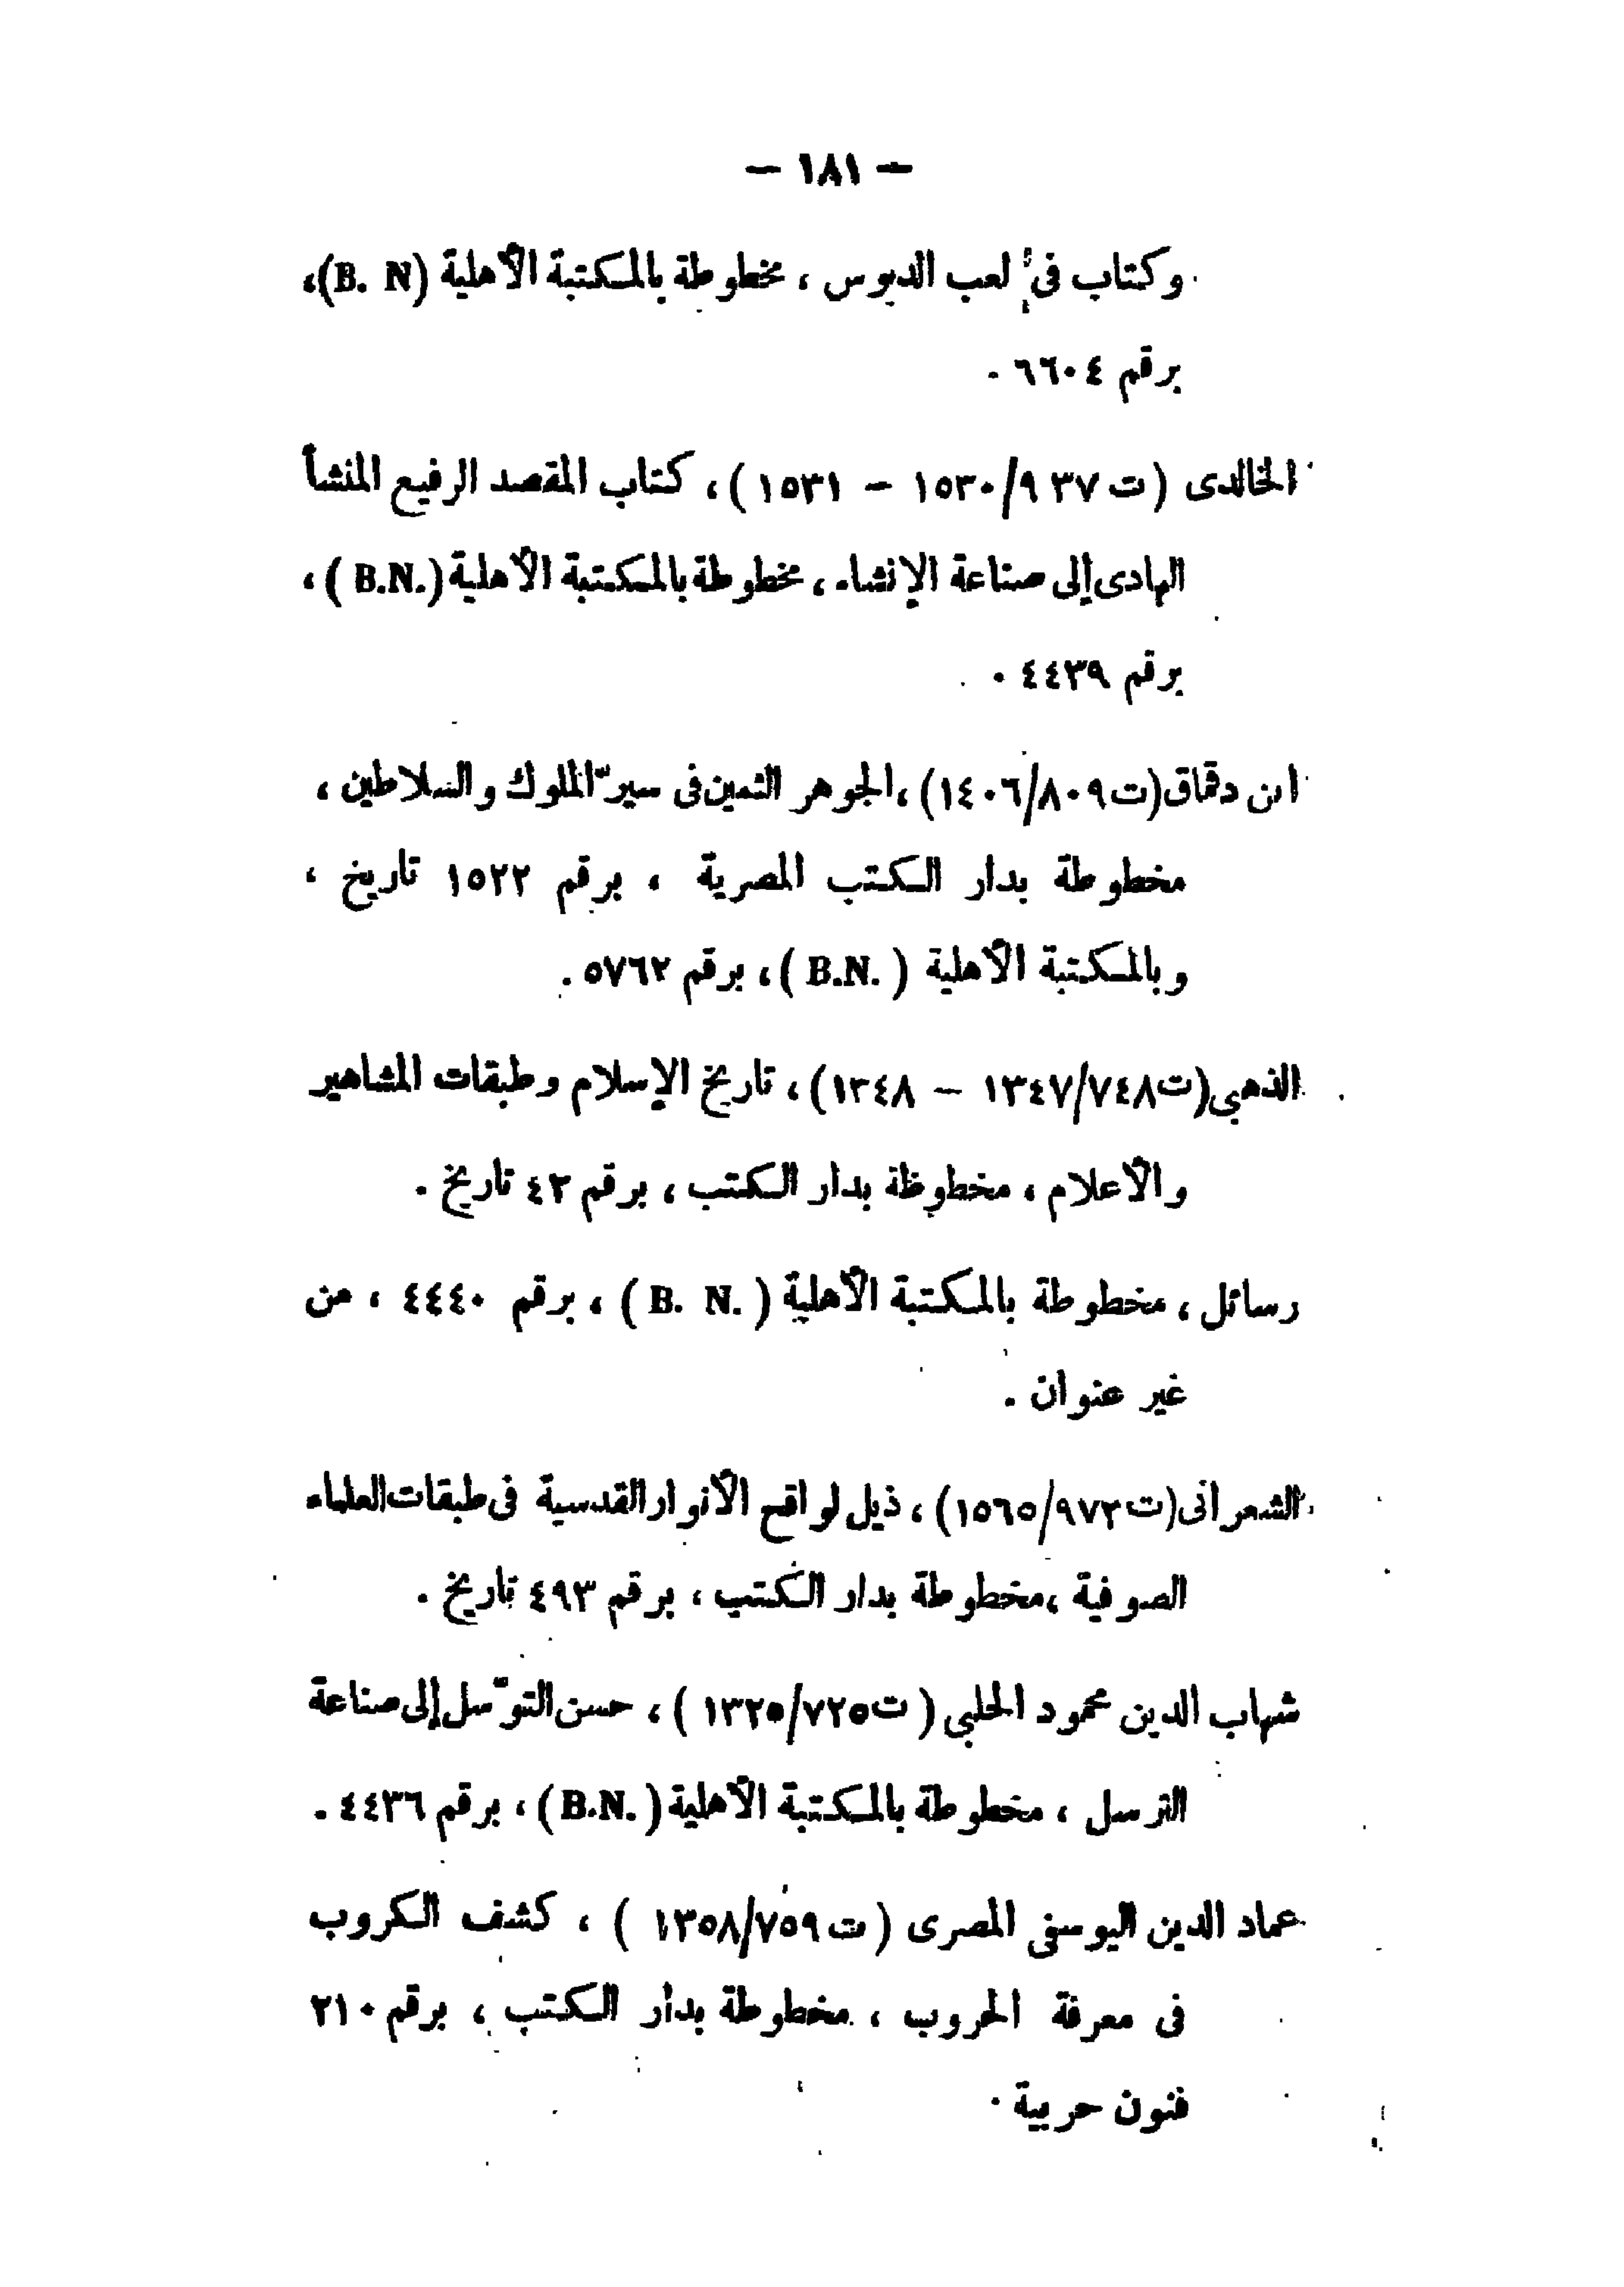 — ١٨١ —
وكتاب فى لعب الدبوس ، مخطوطة بالمكتبة الأهلية (B. N)،
برقم ٦٦٠٤ .
الخالدى (ت ٩٣٧/١٥٣٠ – ١٥٣١) ، كتاب المقصد الرفيع المنشأ
الهادى إلى صناعة الإنشاء ، مخطوطة بالمكتبة الأهلية (B.N.) ،
برقم ٤٤٣٩ .
ابن دقماق (ت ٨٠٩/١٤٠٦) ، الجوهر الثمين فى سير الملوك والسلاطين ،
مخطوطة بدار الكتب المصرية ، برقم ١٥٢٢ تاريخ ،
وبالمكتبة الأهلية (B.N.) ، برقم ٥٧٦٢ .
الذهبى (ت ٧٤٨/١٣٤٧ – ١٣٤٨) ، تاريخ الإسلام وطبقات المشاهير
والأعلام ، مخطوظة بدار الكتب ، برقم ٤٢ تاريخ .
رسائل ، مخطوطة بالمكتبة الأهلية (B. N.) ، برقم ٤٤٤٠ ، من
غير عنوان .
الشعرانى (ت ٩٧٣/١٥٦٥) ، ذيل لواقح الأنوار القدسية فى طبقات العلماء
الصوفية ، مخطوطة بدار الكتب ، برقم ٤٩٣ تاريخ .
شهاب الدين محمود الحلبى (ت ٧٢٥/١٣٢٥) ، حسن التوسّل إلى صناعة
الترسل ، مخطوطة بالمكتبة الأهلية (B.N.) ، برقم ٤٤٣٦ .
عماد الدين اليوسفى المصرى (ت ٧٥٩/١٣٥٨) ، كشف الكروب
فى معرفة الحروب ، مخطوطة بدار الكتب ، برقم ٢١٠
فنون حربية .